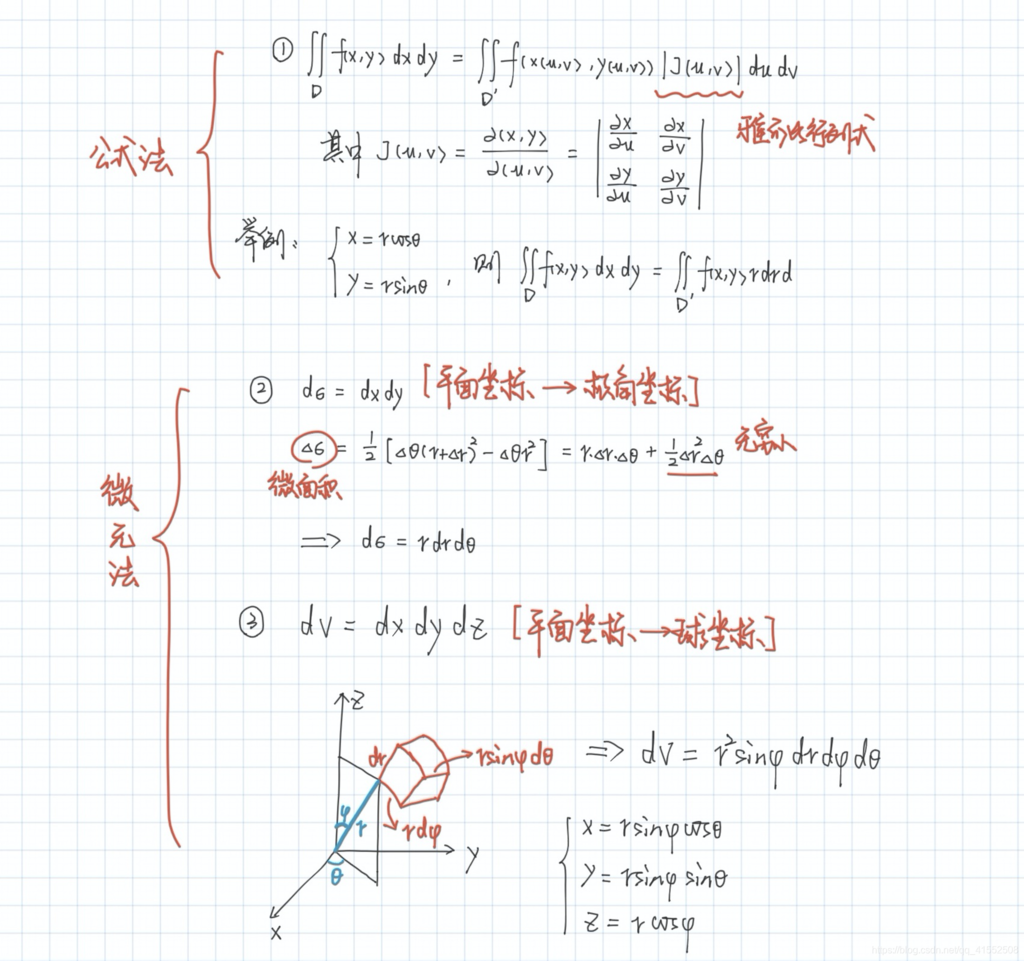 公式法
① ∬_D f(x,y) dx dy = ∬_D' f(x(u,v), y(u,v)) |J(u,v)| du dv
雅可比行列式
其中 J(u,v) = ∂(x,y)/∂(u,v) = | ∂x/∂u ∂x/∂v ; ∂y/∂u ∂y/∂v |
举例: { x = rcosθ
y = rsinθ , 则 ∬_D f(x,y) dx dy = ∬_D' f(x,y) r dr d
微元法
② dσ = dx dy [平面坐标 → 极角坐标]
Δσ = 1/2 [Δθ(r+Δr)² - Δθr²] = r·Δr·Δθ + 1/2 Δr²Δθ 无穷小
微面积
=> dσ = r dr dθ
③ dV = dx dy dz [平面坐标 → 球坐标]
Z
dr
rsinφdθ => dV = r²sinφ dr dφ dθ
φ r
rdφ
θ
Y
X
{ X = rsinφ cosθ
Y = rsinφ sinθ
Z = r cosφ